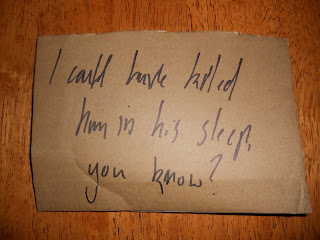 I could have killed
him in his sleep,
you know?